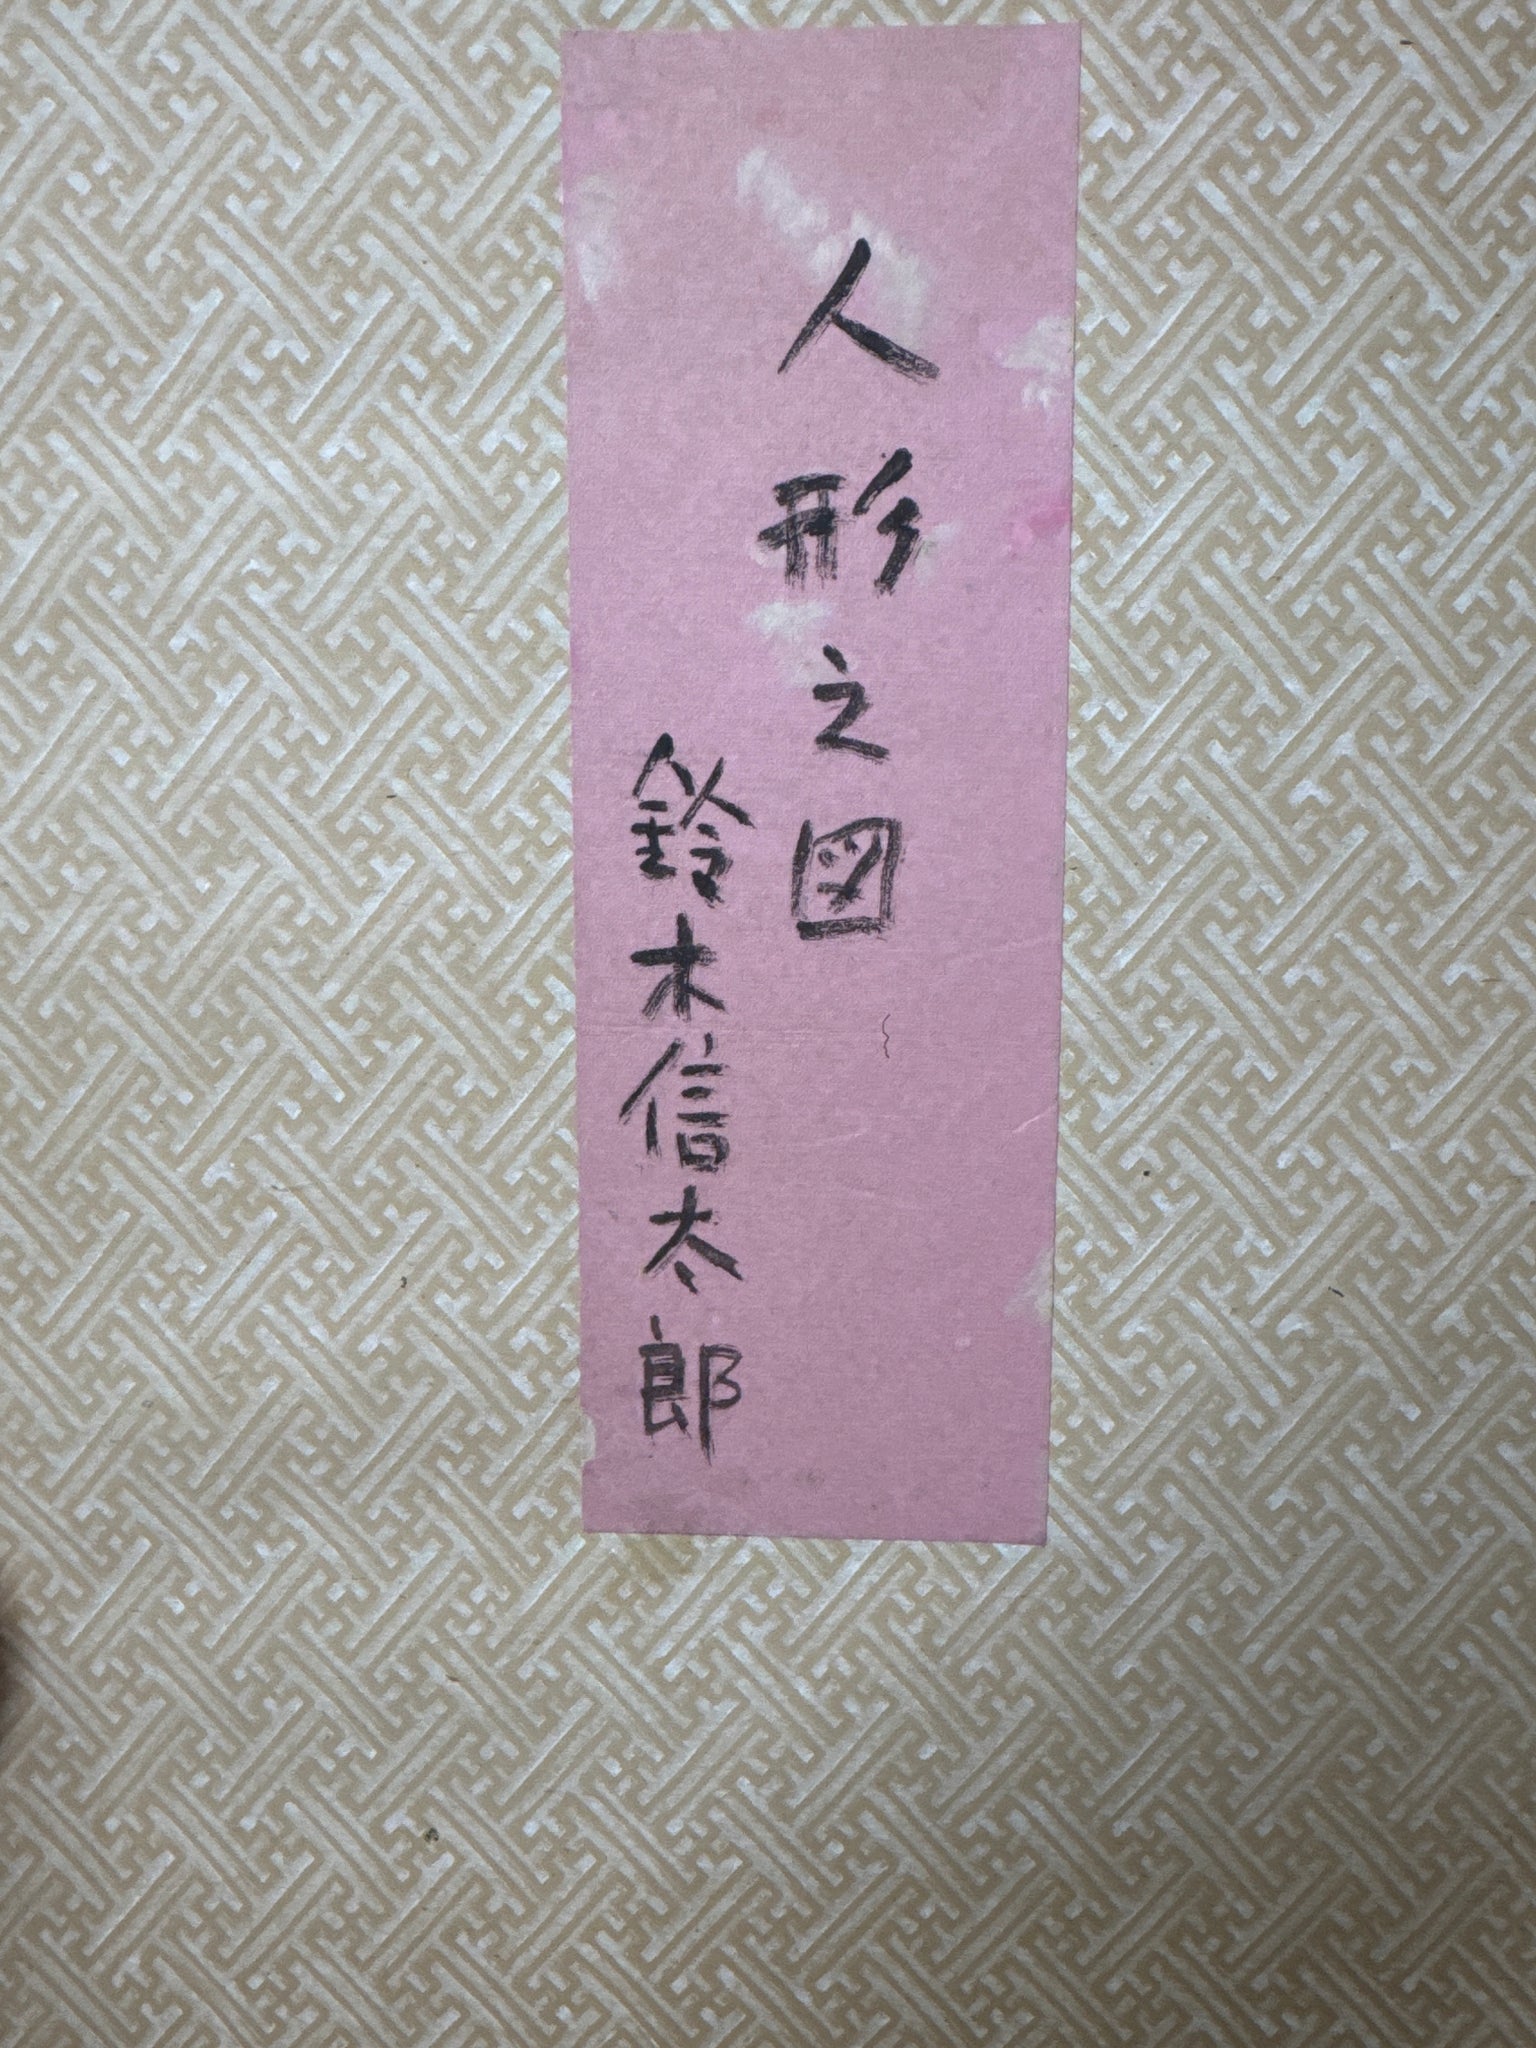 人形之図
鈴木信太郎